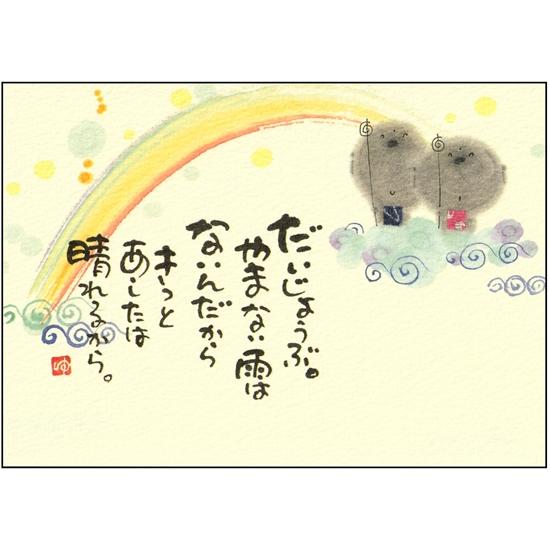 だいじょうぶ。
やまない雨は
ないんだから
きっと
あしたは
晴れるから。
ゆ